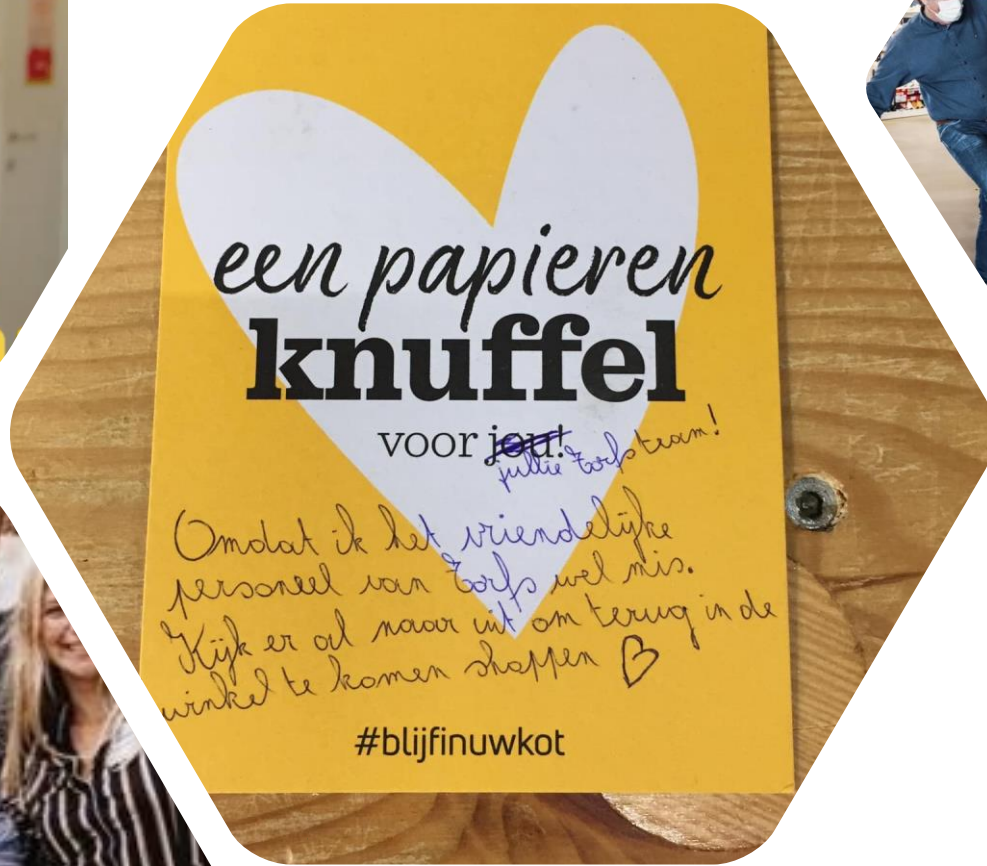 een papieren
knuffel
voor jou!
jullie Torfs team!
Omdat ik het vriendelijke
personeel van Torfs wel mis.
Kijk er al naar uit om terug in de
winkel te komen shoppen
#blijfinuwkot